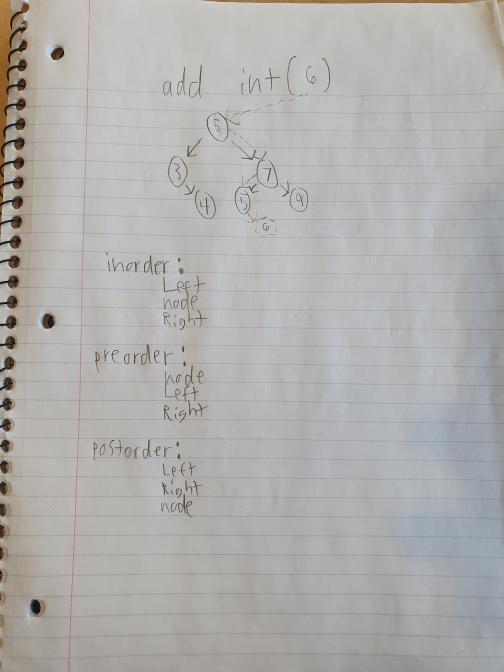 add int(6)
5
3 7
4 5 9
6
inorder:
Left
node
Right
preorder:
node
Left
Right
postorder:
Left
Right
node